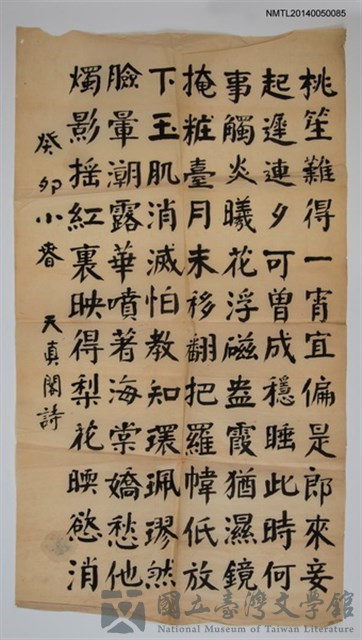 NMTL20140050085
桃笙難得一宵宜偏是郎來妾
起遲連夕可曾成穩睡此時何
事觸炎曦花浮磁盎霞猶濕鏡
掩粧臺月未移翻把羅幃低放
下玉肌消滅怕教知環珮璆然
臉暈潮露華噴著海棠嬌愁他
燭影搖紅裏映得梨花睡慾消
癸卯小春 天真閣詩
國立臺灣文學館
National Museum of Taiwan Literature